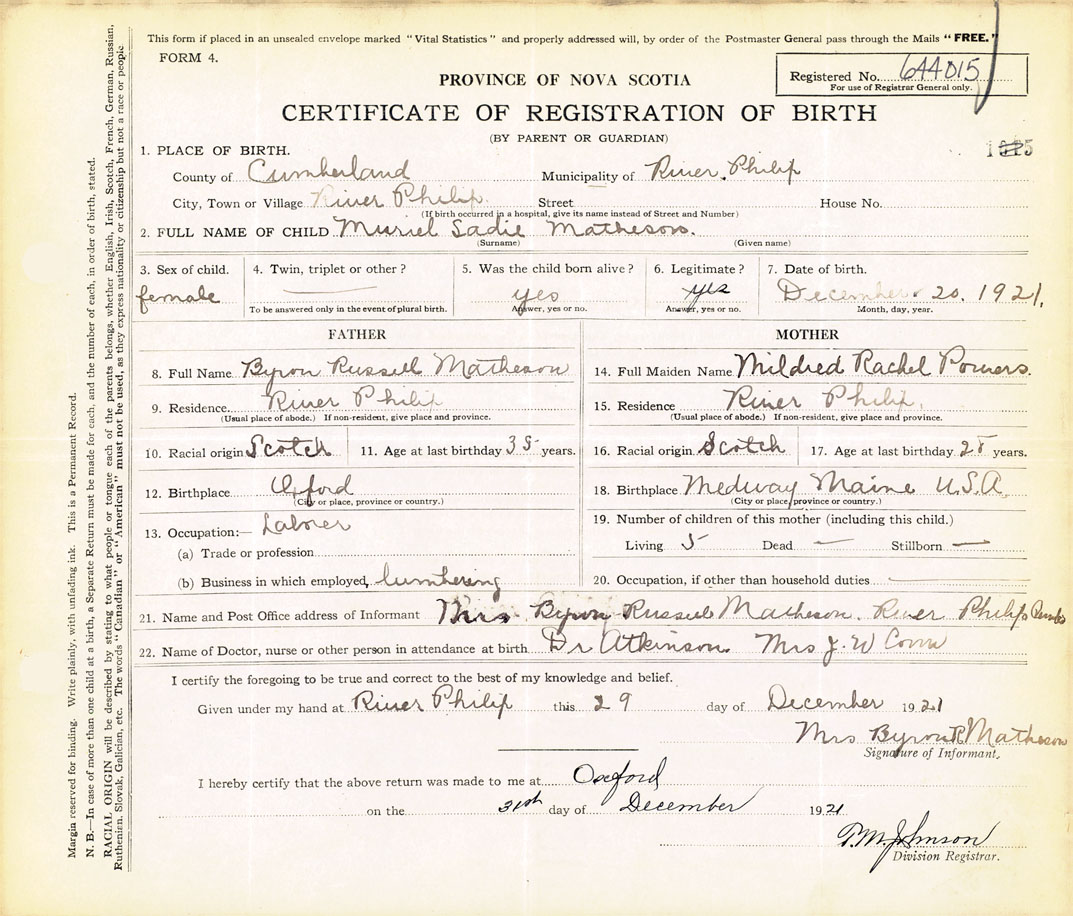 This form if placed in an unsealed envelope marked "Vital Statistics" and properly addressed will, by order of the Postmaster General pass through the Mails "FREE."
FORM 4.
Registered No. 644015
For use of Registrar General only.
PROVINCE OF NOVA SCOTIA
CERTIFICATE OF REGISTRATION OF BIRTH
(BY PARENT OR GUARDIAN)
1. PLACE OF BIRTH.
County of Cumberland Municipality of River Philip
City, Town or Village River Philip Street House No.
(If birth occurred in a hospital, give its name instead of Street and Number)
2. FULL NAME OF CHILD Muriel Sadie Matheson.
(Surname) (Given name)
3. Sex of child. 4. Twin, triplet or other? 5. Was the child born alive? 6. Legitimate? 7. Date of birth.
female yes yes December 20. 1921.
To be answered only in the event of plural birth. Answer, yes or no. Answer, yes or no. Month, day, year.
FATHER
8. Full Name Byron Russell Matheson
9. Residence River Philip
(Usual place of abode.) If non-resident, give place and province.
10. Racial origin Scotch 11. Age at last birthday 35 years.
12. Birthplace Oxford
(City or place, province or country.)
13. Occupation:— Laborer
(a) Trade or profession
(b) Business in which employed lumbering
MOTHER
14. Full Maiden Name Mildred Rachel Powers.
15. Residence River Philip.
(Usual place of abode.) If non-resident, give place and province.
16. Racial origin Scotch 17. Age at last birthday 28 years.
18. Birthplace Medway Maine U.S.A.
(City or place, province or country.)
19. Number of children of this mother (including this child.)
Living 5 Dead — Stillborn —
20. Occupation, if other than household duties
21. Name and Post Office address of Informant Mrs. Byron Russell Matheson. River Philip
22. Name of Doctor, nurse or other person in attendance at birth Dr Atkinson Mrs J. W
I certify the foregoing to be true and correct to the best of my knowledge and belief.
Given under my hand at River Philip this 29 day of December 1921
Mrs Byron R Matheson
Signature of Informant.
I hereby certify that the above return was made to me at Oxford
on the 31st day of December 1921
T. M. Johnson
Division Registrar.
Margin reserved for binding. Write plainly, with unfading ink. This is a Permanent Record.
N. B.—In case of more than one child at a birth, a Separate Return must be made for each, and the number of each, in order of birth, stated.
RACIAL ORIGIN will be described by stating to what people or tongue each of the parents belongs, whether English, Irish, Scotch, French, German, Russian,
Ruthenian, Slovak, Galician, etc. The words "Canadian" or "American" must not be used, as they express nationality or citizenship but not a race or people